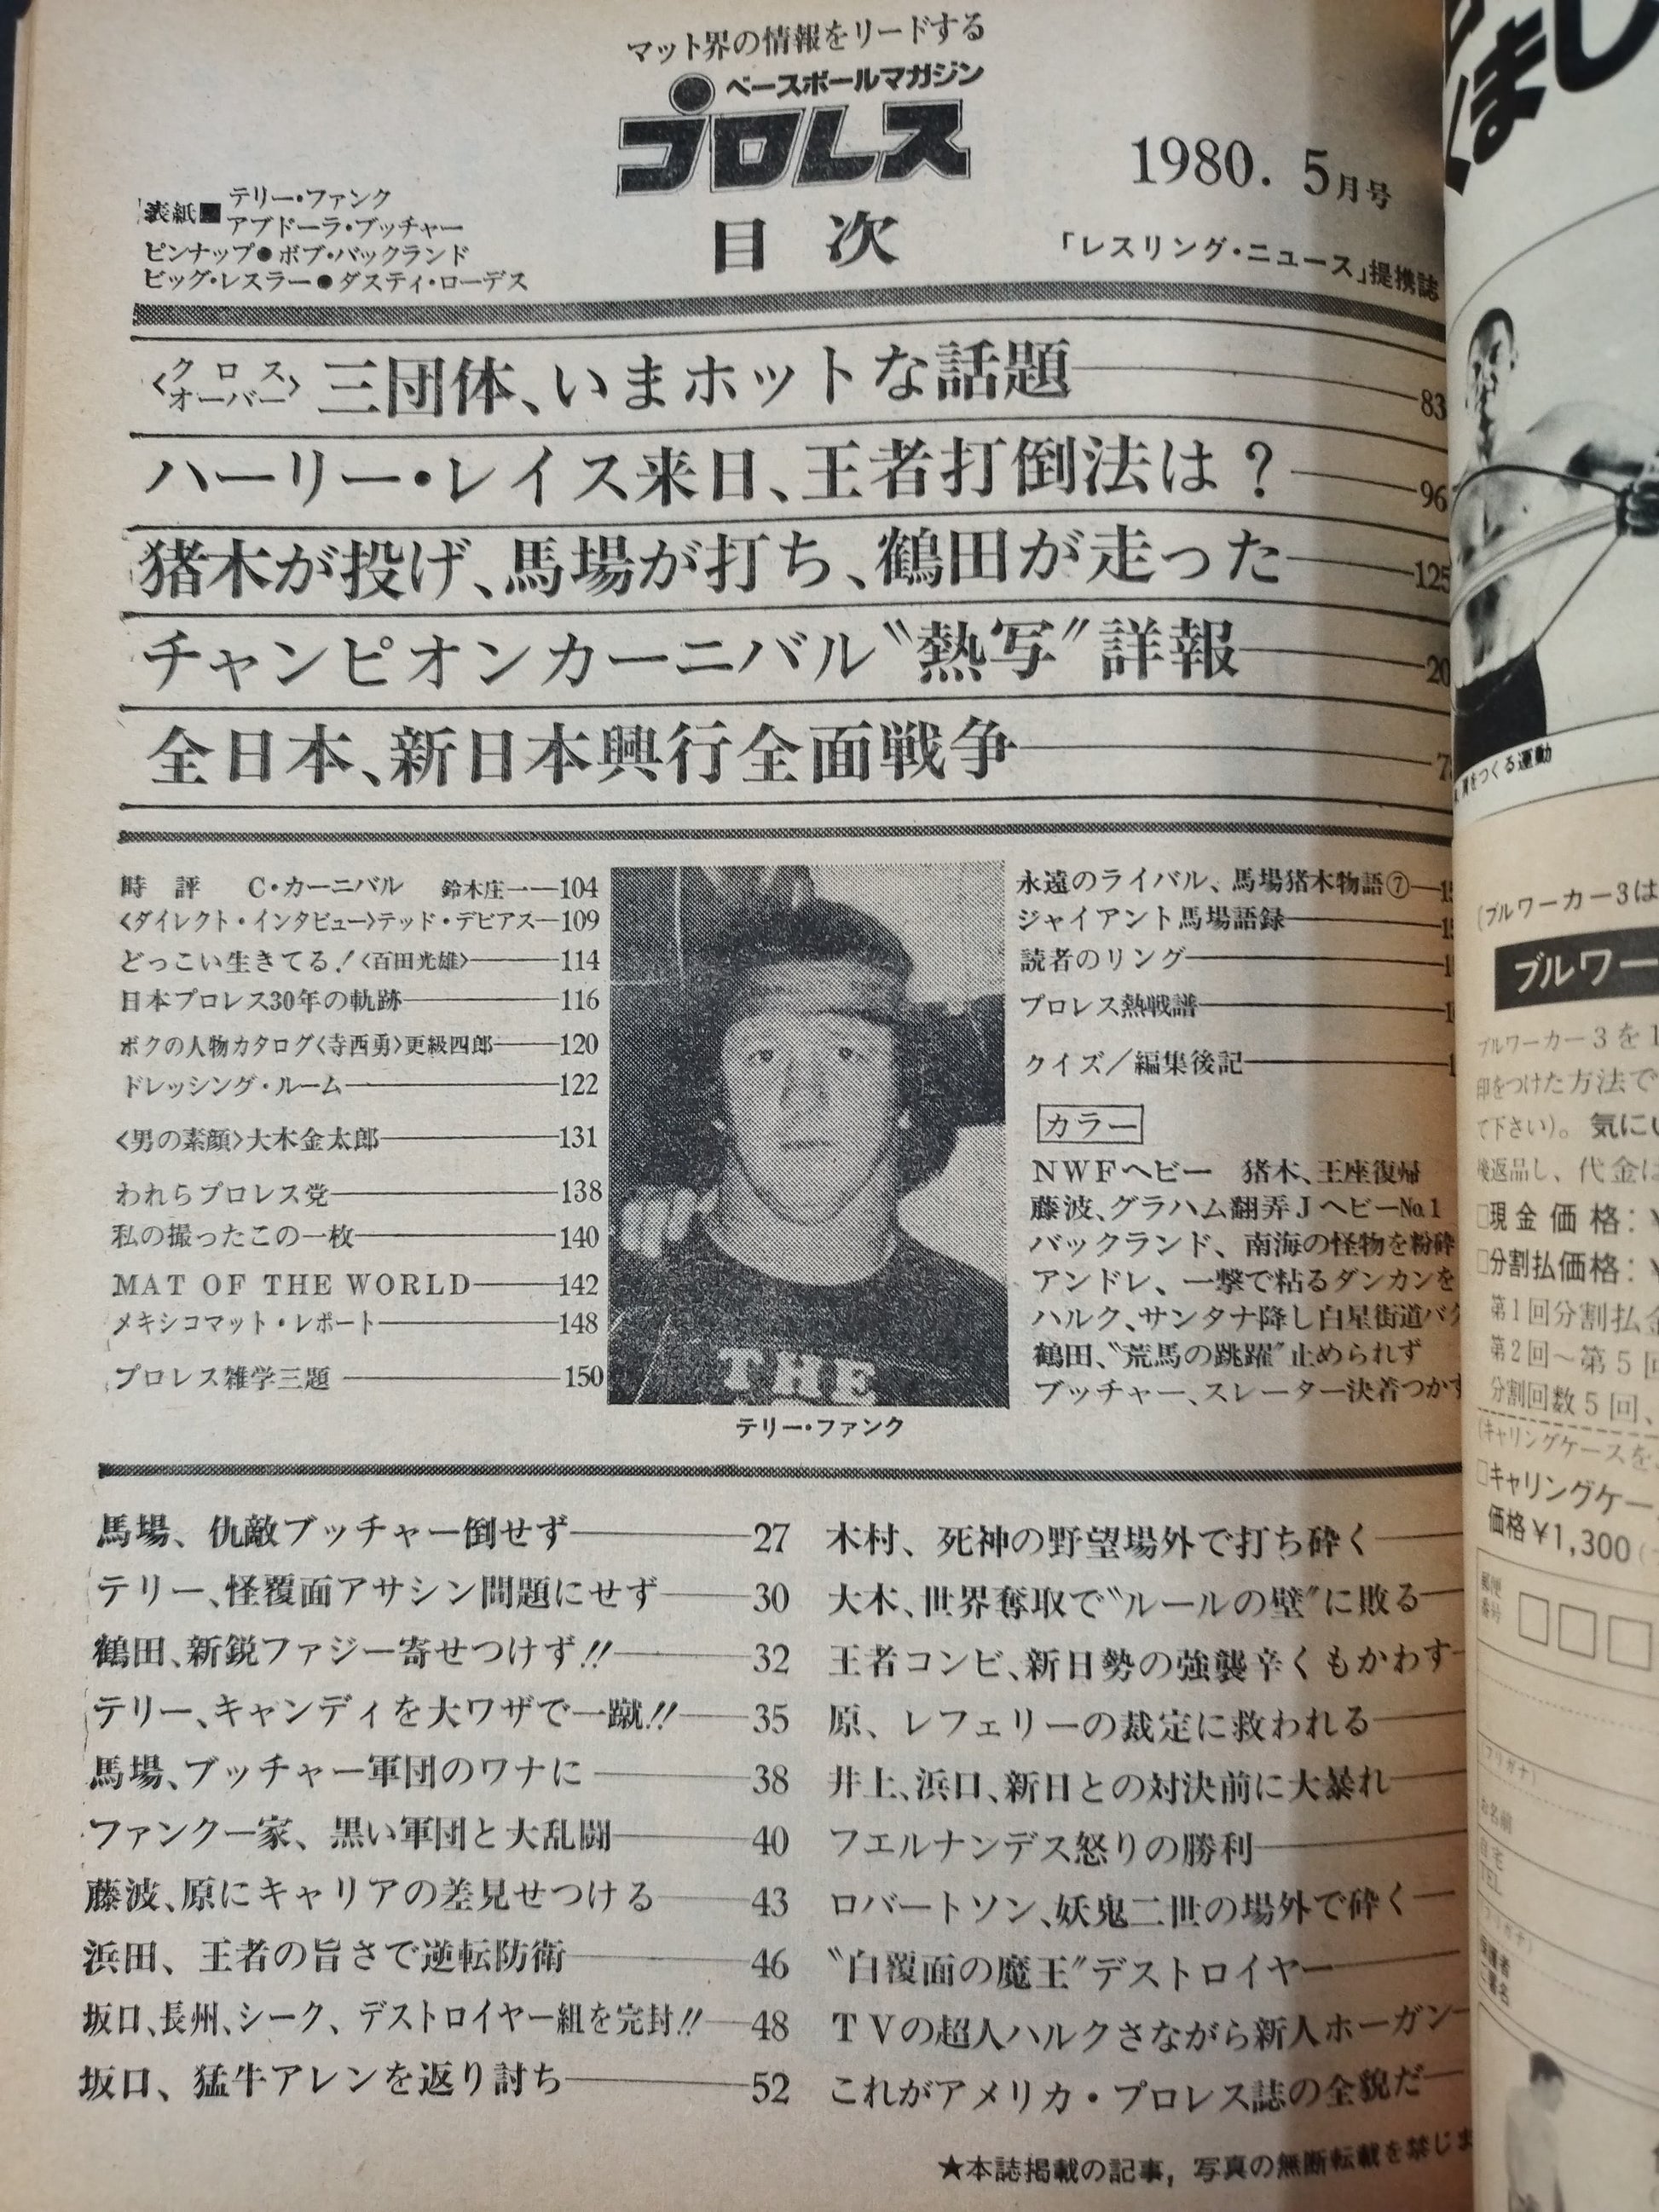 マット界の情報をリードする
ベースボールマガジン
プロレス
1980. 5月号
目次
「レスリング・ニュース」提携誌
表紙■テリー・ファンク
アブドーラ・ブッチャー
ピンナップ●ボブ・バックランド
ビッグ・レスラー●ダスティ・ローデス
〈クロスオーバー〉三団体、いまホットな話題 83
ハーリー・レイス来日、王者打倒法は？ 96
猪木が投げ、馬場が打ち、鶴田が走った 125
チャンピオンカーニバル〝熱写〟詳報 20
全日本、新日本興行全面戦争
時評 C・カーニバル 鈴木庄一 104
〈ダイレクト・インタビュー〉テッド・デビアス 109
どっこい生きてる！〈百田光雄〉 114
日本プロレス30年の軌跡 116
ボクの人物カタログ〈寺西勇〉更級四郎 120
ドレッシング・ルーム 122
〈男の素顔〉大木金太郎 131
われらプロレス党 138
私の撮ったこの一枚 140
MAT OF THE WORLD 142
メキシコマット・レポート 148
プロレス雑学三題 150
THE
テリー・ファンク
永遠のライバル、馬場猪木物語⑦
ジャイアント馬場語録
読者のリング
プロレス熱戦譜
クイズ／編集後記
カラー
NWFヘビー 猪木、王座復帰
藤波、グラハム翻弄JヘビーNo.1
バックランド、南海の怪物を粉砕
アンドレ、一撃で粘るダンカンを
ハルク、サンタナ降し白星街道バク
鶴田、〝荒馬の跳躍〟止められず
ブッチャー、スレーター決着つかず
馬場、仇敵ブッチャー倒せず 27
テリー、怪覆面アサシン問題にせず 30
鶴田、新鋭ファジー寄せつけず!! 32
テリー、キャンディを大ワザで一蹴!! 35
馬場、ブッチャー軍団のワナに 38
ファンク一家、黒い軍団と大乱闘 40
藤波、原にキャリアの差見せつける 43
浜田、王者の旨さで逆転防衛 46
坂口、長州、シーク、デストロイヤー組を完封!! 48
坂口、猛牛アレンを返り討ち 52
木村、死神の野望場外で打ち砕く
大木、世界奪取で〝ルールの壁〟に敗る
王者コンビ、新日勢の強襲辛くもかわす
原、レフェリーの裁定に救われる
井上、浜口、新日との対決前に大暴れ
フエルナンデス怒りの勝利
ロバートソン、妖鬼二世の場外で砕く
〝白覆面の魔王〟デストロイヤー
TVの超人ハルクさながら新人ホーガン
これがアメリカ・プロレス誌の全貌だ
★本誌掲載の記事，写真の無断転載を禁じま
くましく
肩をつくる運動
(ブルワーカー3は
ブルワー
ブルワーカー3を1
印をつけた方法で
て下さい)。気にい
後返品し、代金は
□現金価格：¥
□分割払価格：¥
第1回分割払金
第2回～第5回
分割回数5回、
(キャリングケースを
□キャリングケー
価格¥1,300
郵便番号
フリガナ
お名前
自宅TEL